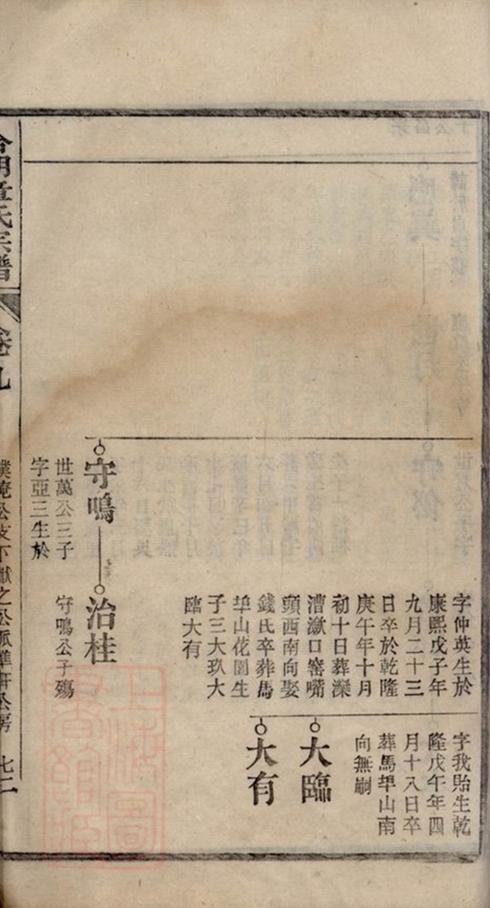 字仲英生於
康熙戊子年
九月二十三
日卒於乾隆
庚午年十月
初十日葬濮
漕漱口窑嘴
頭西南向娶
錢氏卒葬馬
埠山花園生
子三大玖大
臨大有
字我貽生乾
隆戊午年四
月十八日卒
葬馬埠山南
向無嗣
大臨
大有
守鳴
世萬公三子
字亞三生於
治桂
守鳴公子殤
章氏宗譜
卷九